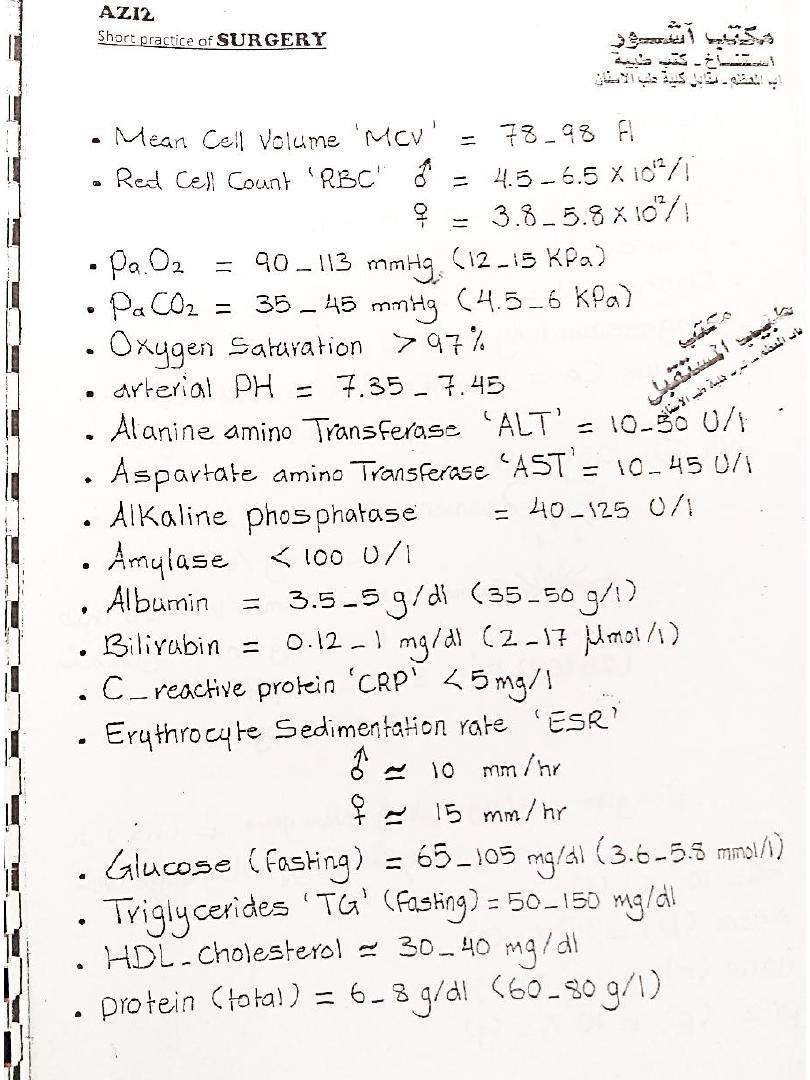 AZIZ
Short practice of SURGERY
مكتب آشور
استنساخ - كتب طبية
باب المعظم - مقابل كلية طب الاسنان
• Mean Cell Volume 'MCV' = 78_98 fl
• Red Cell Count 'RBC' ♂ = 4.5_6.5 X 10¹²/l
♀ = 3.8_5.8 X 10¹²/l
• PaO₂ = 90_113 mmHg (12_15 KPa)
• PaCO₂ = 35_45 mmHg (4.5_6 KPa)
• Oxygen Saturation > 97%
مكتب
طبيب المستقبل
• arterial PH = 7.35_7.45
• Alanine amino Transferase 'ALT' = 10_50 U/l
• Aspartate amino Transferase 'AST' = 10_45 U/l
• Alkaline phosphatase = 40_125 U/l
• Amylase < 100 U/l
• Albumin = 3.5_5 g/dl (35_50 g/l)
• Bilirubin = 0.12_1 mg/dl (2_17 µmol/l)
• C_reactive protein 'CRP' < 5 mg/l
• Erythrocyte Sedimentation rate 'ESR'
♂ ≃ 10 mm/hr
♀ ≃ 15 mm/hr
• Glucose (fasting) = 65_105 mg/dl (3.6_5.8 mmol/l)
• Triglycerides 'TG' (fasting) = 50_150 mg/dl
• HDL_cholesterol ≃ 30_40 mg/dl
• protein (total) = 6_8 g/dl (60_80 g/l)